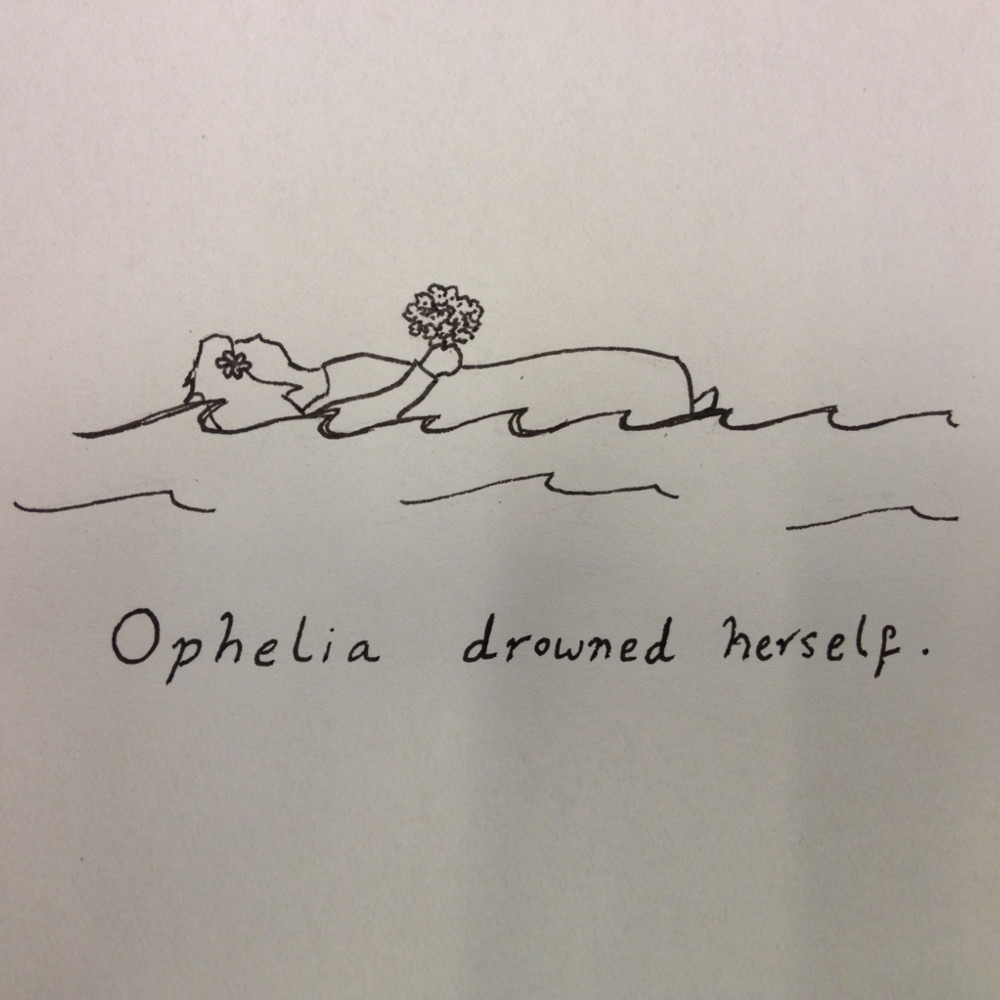 Ophelia drowned herself.